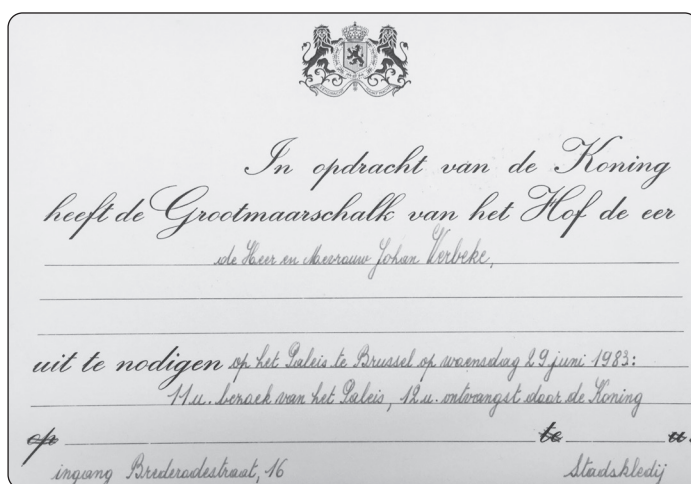 In opdracht van de Koning
heeft de Grootmaarschalk van het Hof de eer
de Heer en Mevrouw Johan Verbeke,
uit te nodigen op het Paleis te Brussel op woensdag 29 juni 1983:
11 u. bezoek van het Paleis, 12 u. ontvangst door de Koning
op te u.
ingang Brederodestraat, 16 Stadskledij